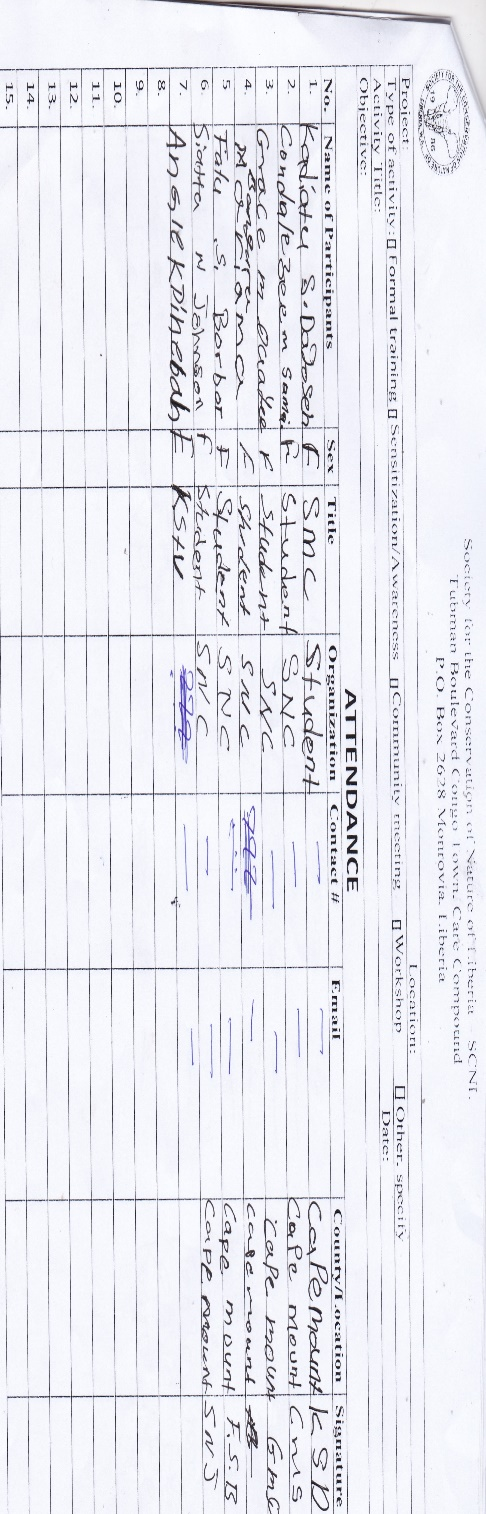 Society for the Conservation of Nature of Liberia - SCNL
Tubman Boulevard Congo Town, Care Compound
P.O. Box 2628 Monrovia, Liberia
Project: Location:
Type of activity: Formal training Sensitization/Awareness Community meeting Workshop Other, specify
Activity Title: Date:
Objective:
ATTENDANCE
No. Name of Participants Sex Title Organization Contact # Email County/Location Signature
1. Kadiatu S. F SMC Student Cape Mount K S D
2. F Student SNC Cape Mount CMS
3. Grace m F Student SNC Cape mount
4. F Student SNC Cape mount
5. Fatu S. Borbor F Student SNC Cape mount F.S.B
6. Siatta N Johnson F Student SNC Cape mount S N J
7. F
8.
9.
10.
11.
12.
13.
14.
15.